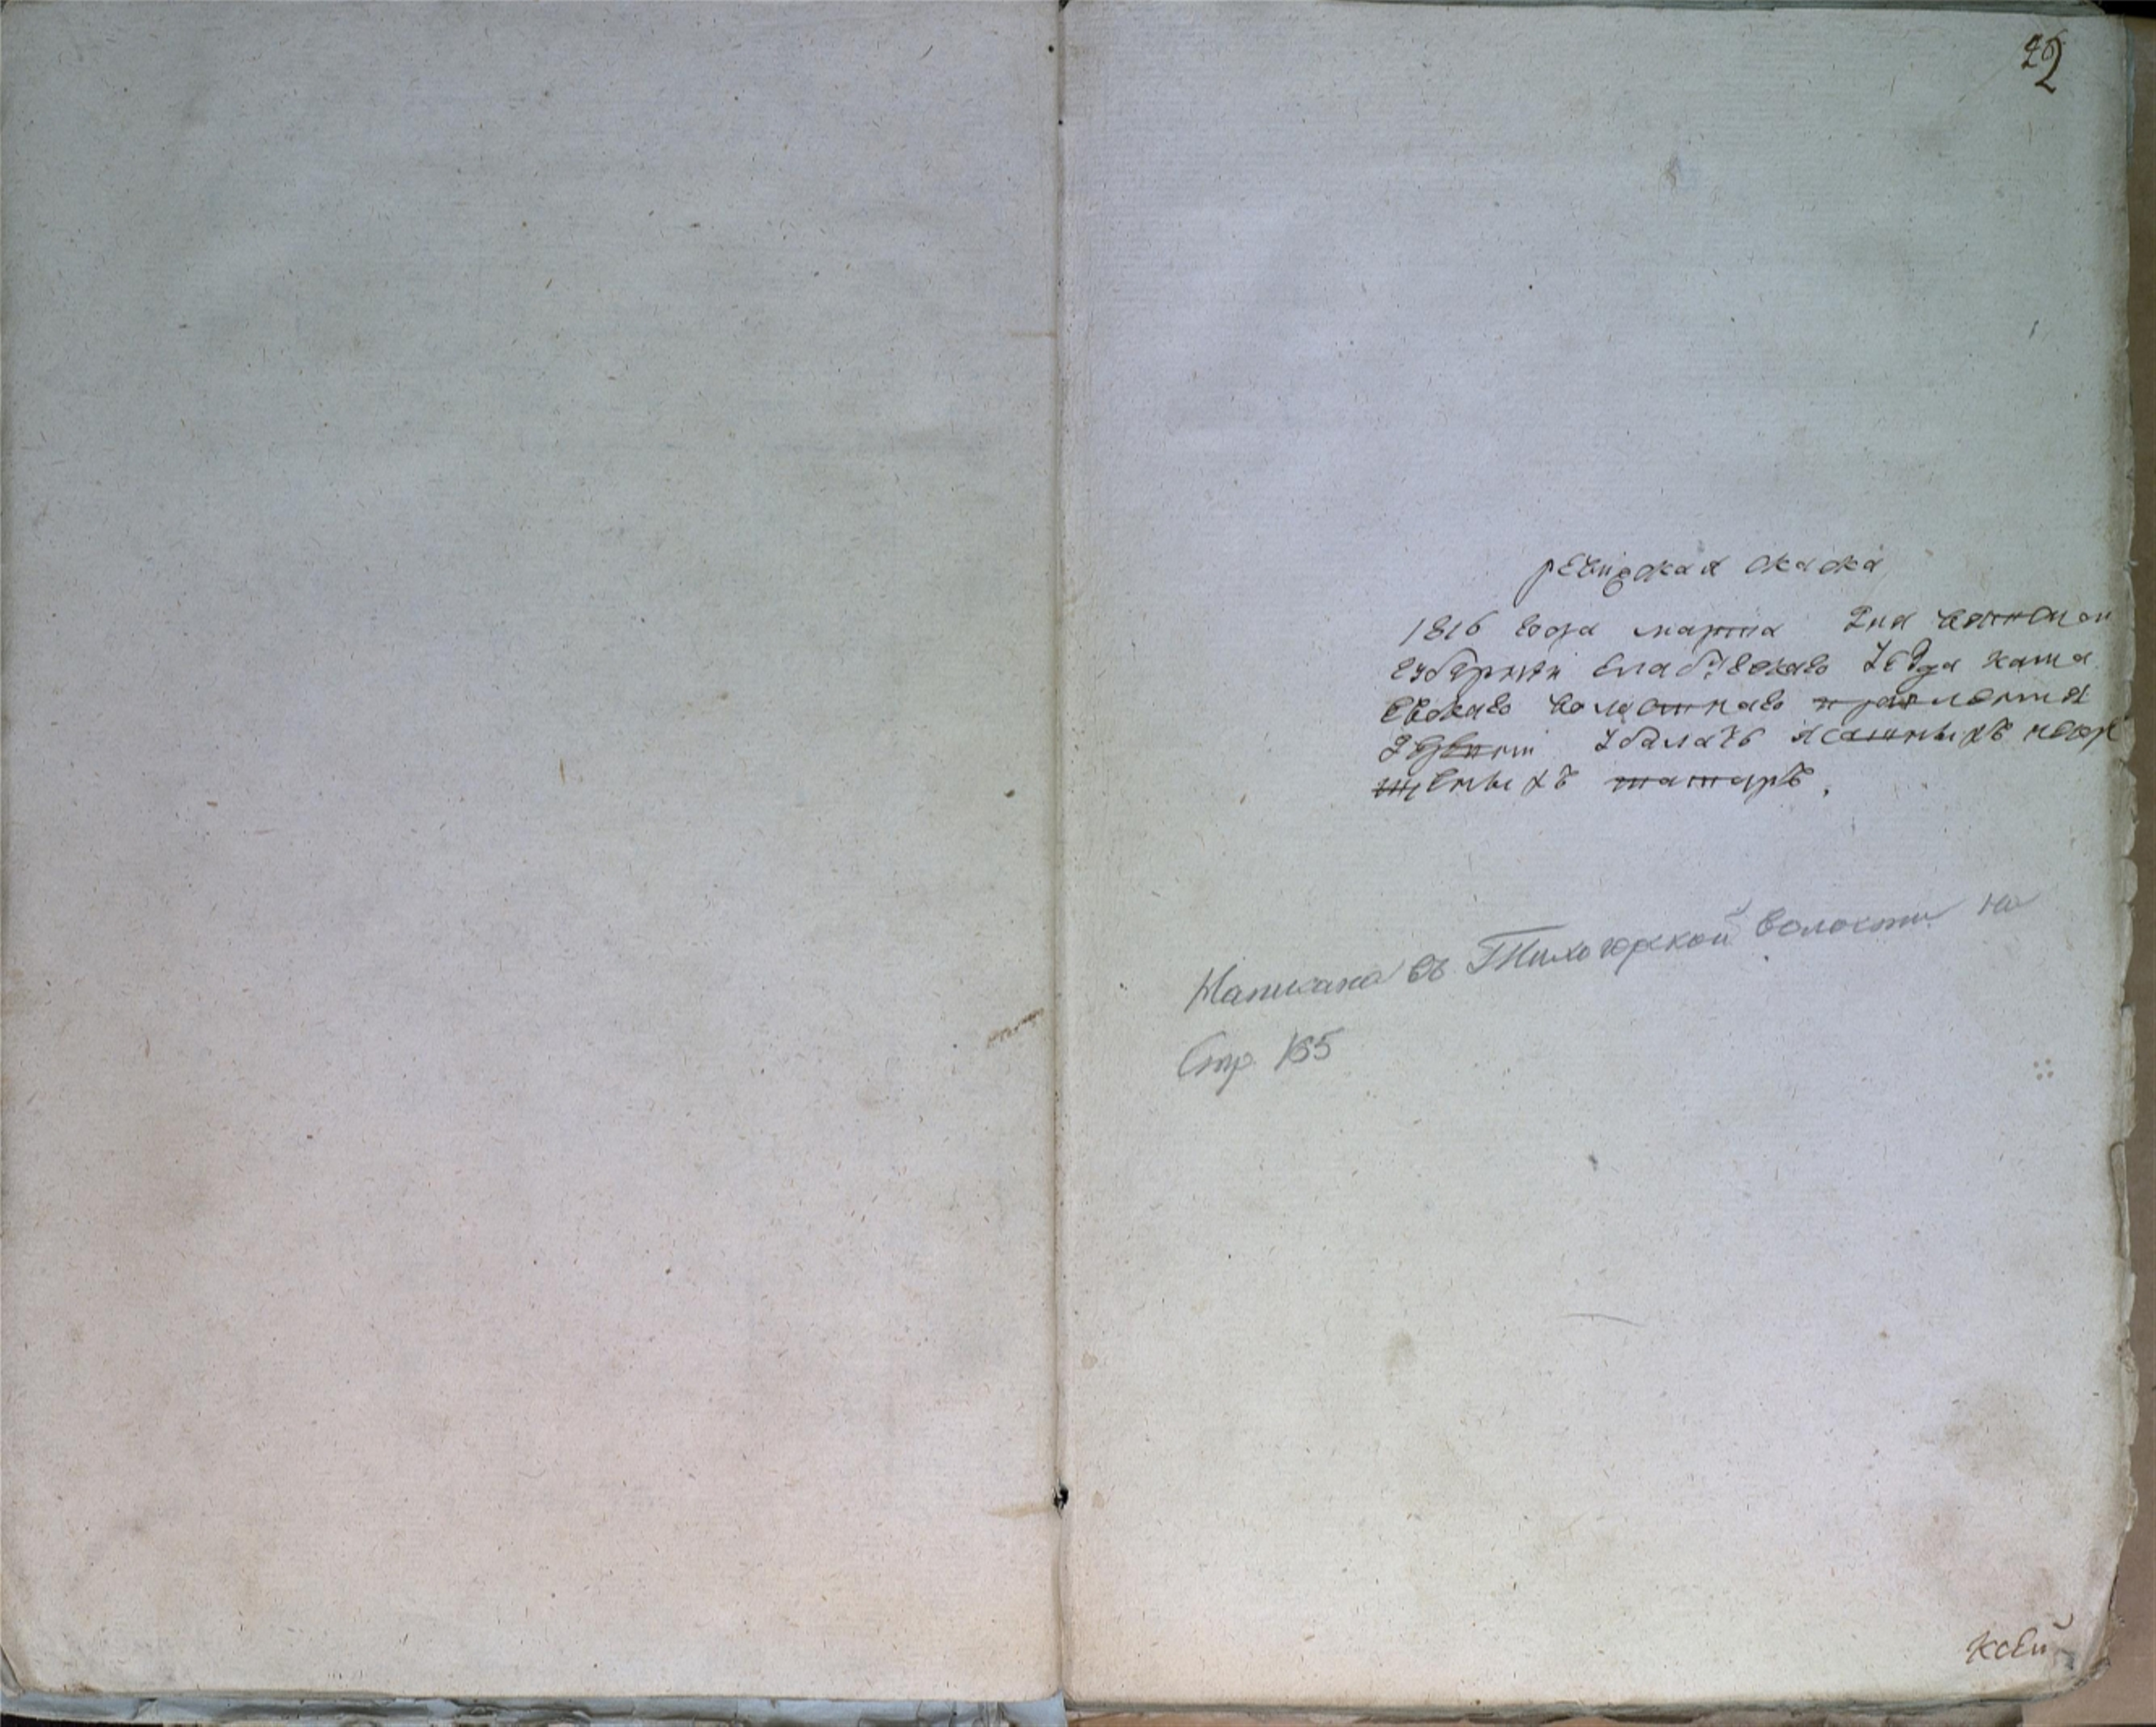 ревизская скаска
1816 года марта Дня вятской
губернии елабужскаго уезда
волостнаго правления
деревни ясашныхъ некре
щеныхъ татаръ.
Написана въ Тихогорской волости на
Стр. 165
ксей